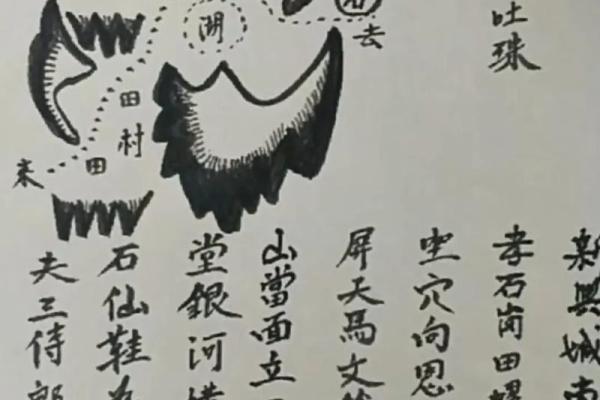 吐珠
新興城南
孝石崗田螺
坐穴向恩
屏天馬文
山當面立
堂銀河
石仙鞋
夫三侍郎
湖
去
田
村
田
来